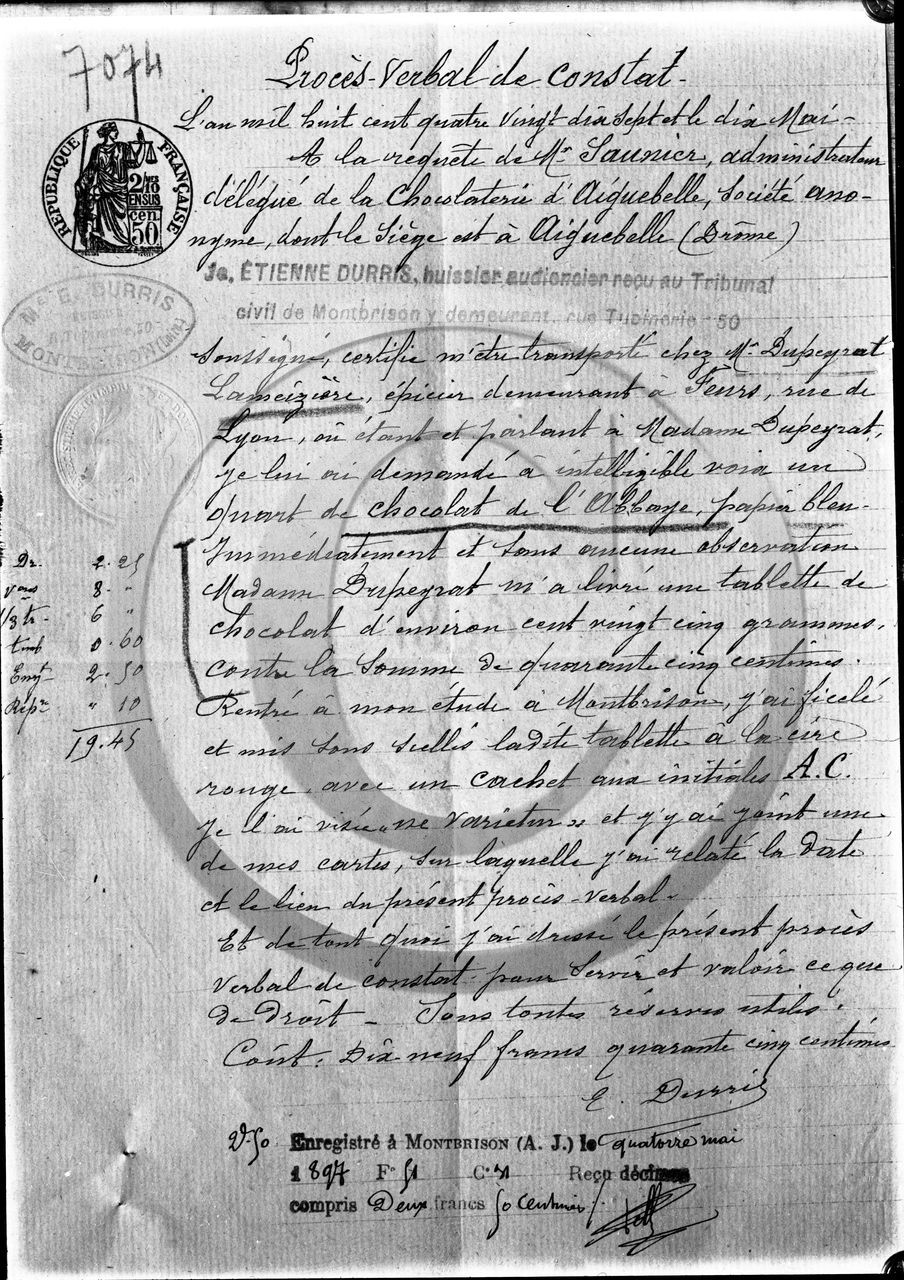 7074
Procès-Verbal de constat-
L'an mil huit cent quatre vingt dix sept et le dix Mai -
A la requête de Mr Saunier, administrateur
délégué de la Chocolaterie d'Aiguebelle, Société ano-
nyme, dont le Siège est à Aiguebelle (Drôme)
RÉPUBLIQUE FRANÇAISE
2/10 EN SUS
cen. 50
Je, ÉTIENNE DURRIS, huissier audiencier reçu au Tribunal
civil de Montbrison y demeurant, rue Tupinerie 50
Me E. DURRIS
soussigné, certifie m'être transporté chez Mr Dupeyrat
Lameizière, épicier demeurant à Feurs, rue de
Lyon, où étant et parlant à Madame Dupeyrat,
je lui ai demandé à intelligible voix un
quart de chocolat de l'Abbaye, papier bleu-
Immédiatement et sans aucune observation
Madame Dupeyrat m'a livré une tablette de
chocolat d'environ cent vingt cinq grammes,
contre la somme de quarante cinq centimes.
Rentré à mon étude à Montbrison, j'ai ficelé
et mis sous scellés ladite tablette à la cire
rouge, avec un cachet aux initiales A.C.
Je l'ai visée "ne varietur" et j'y ai joint une
de mes cartes, sur laquelle j'ai relaté la date
et le lieu du présent procès-verbal.
Et de tout quoi j'ai dressé le présent procès
verbal de constat pour servir et valoir ce que
de droit - Sous toutes réserves utiles.
Coût: Dix-neuf francs quarante cinq centimes
E. Durris
Dr. 2.25
8 "
1/3 tr- 6 "
timb 0.60
Enrt 2.50
Répre " 10
19.45
2f.50 Enregistré à MONTBRISON (A. J.) le quatorze mai
1897 Fo 51 Ce 71 Reçu décimes
compris Deux francs 50 centimes